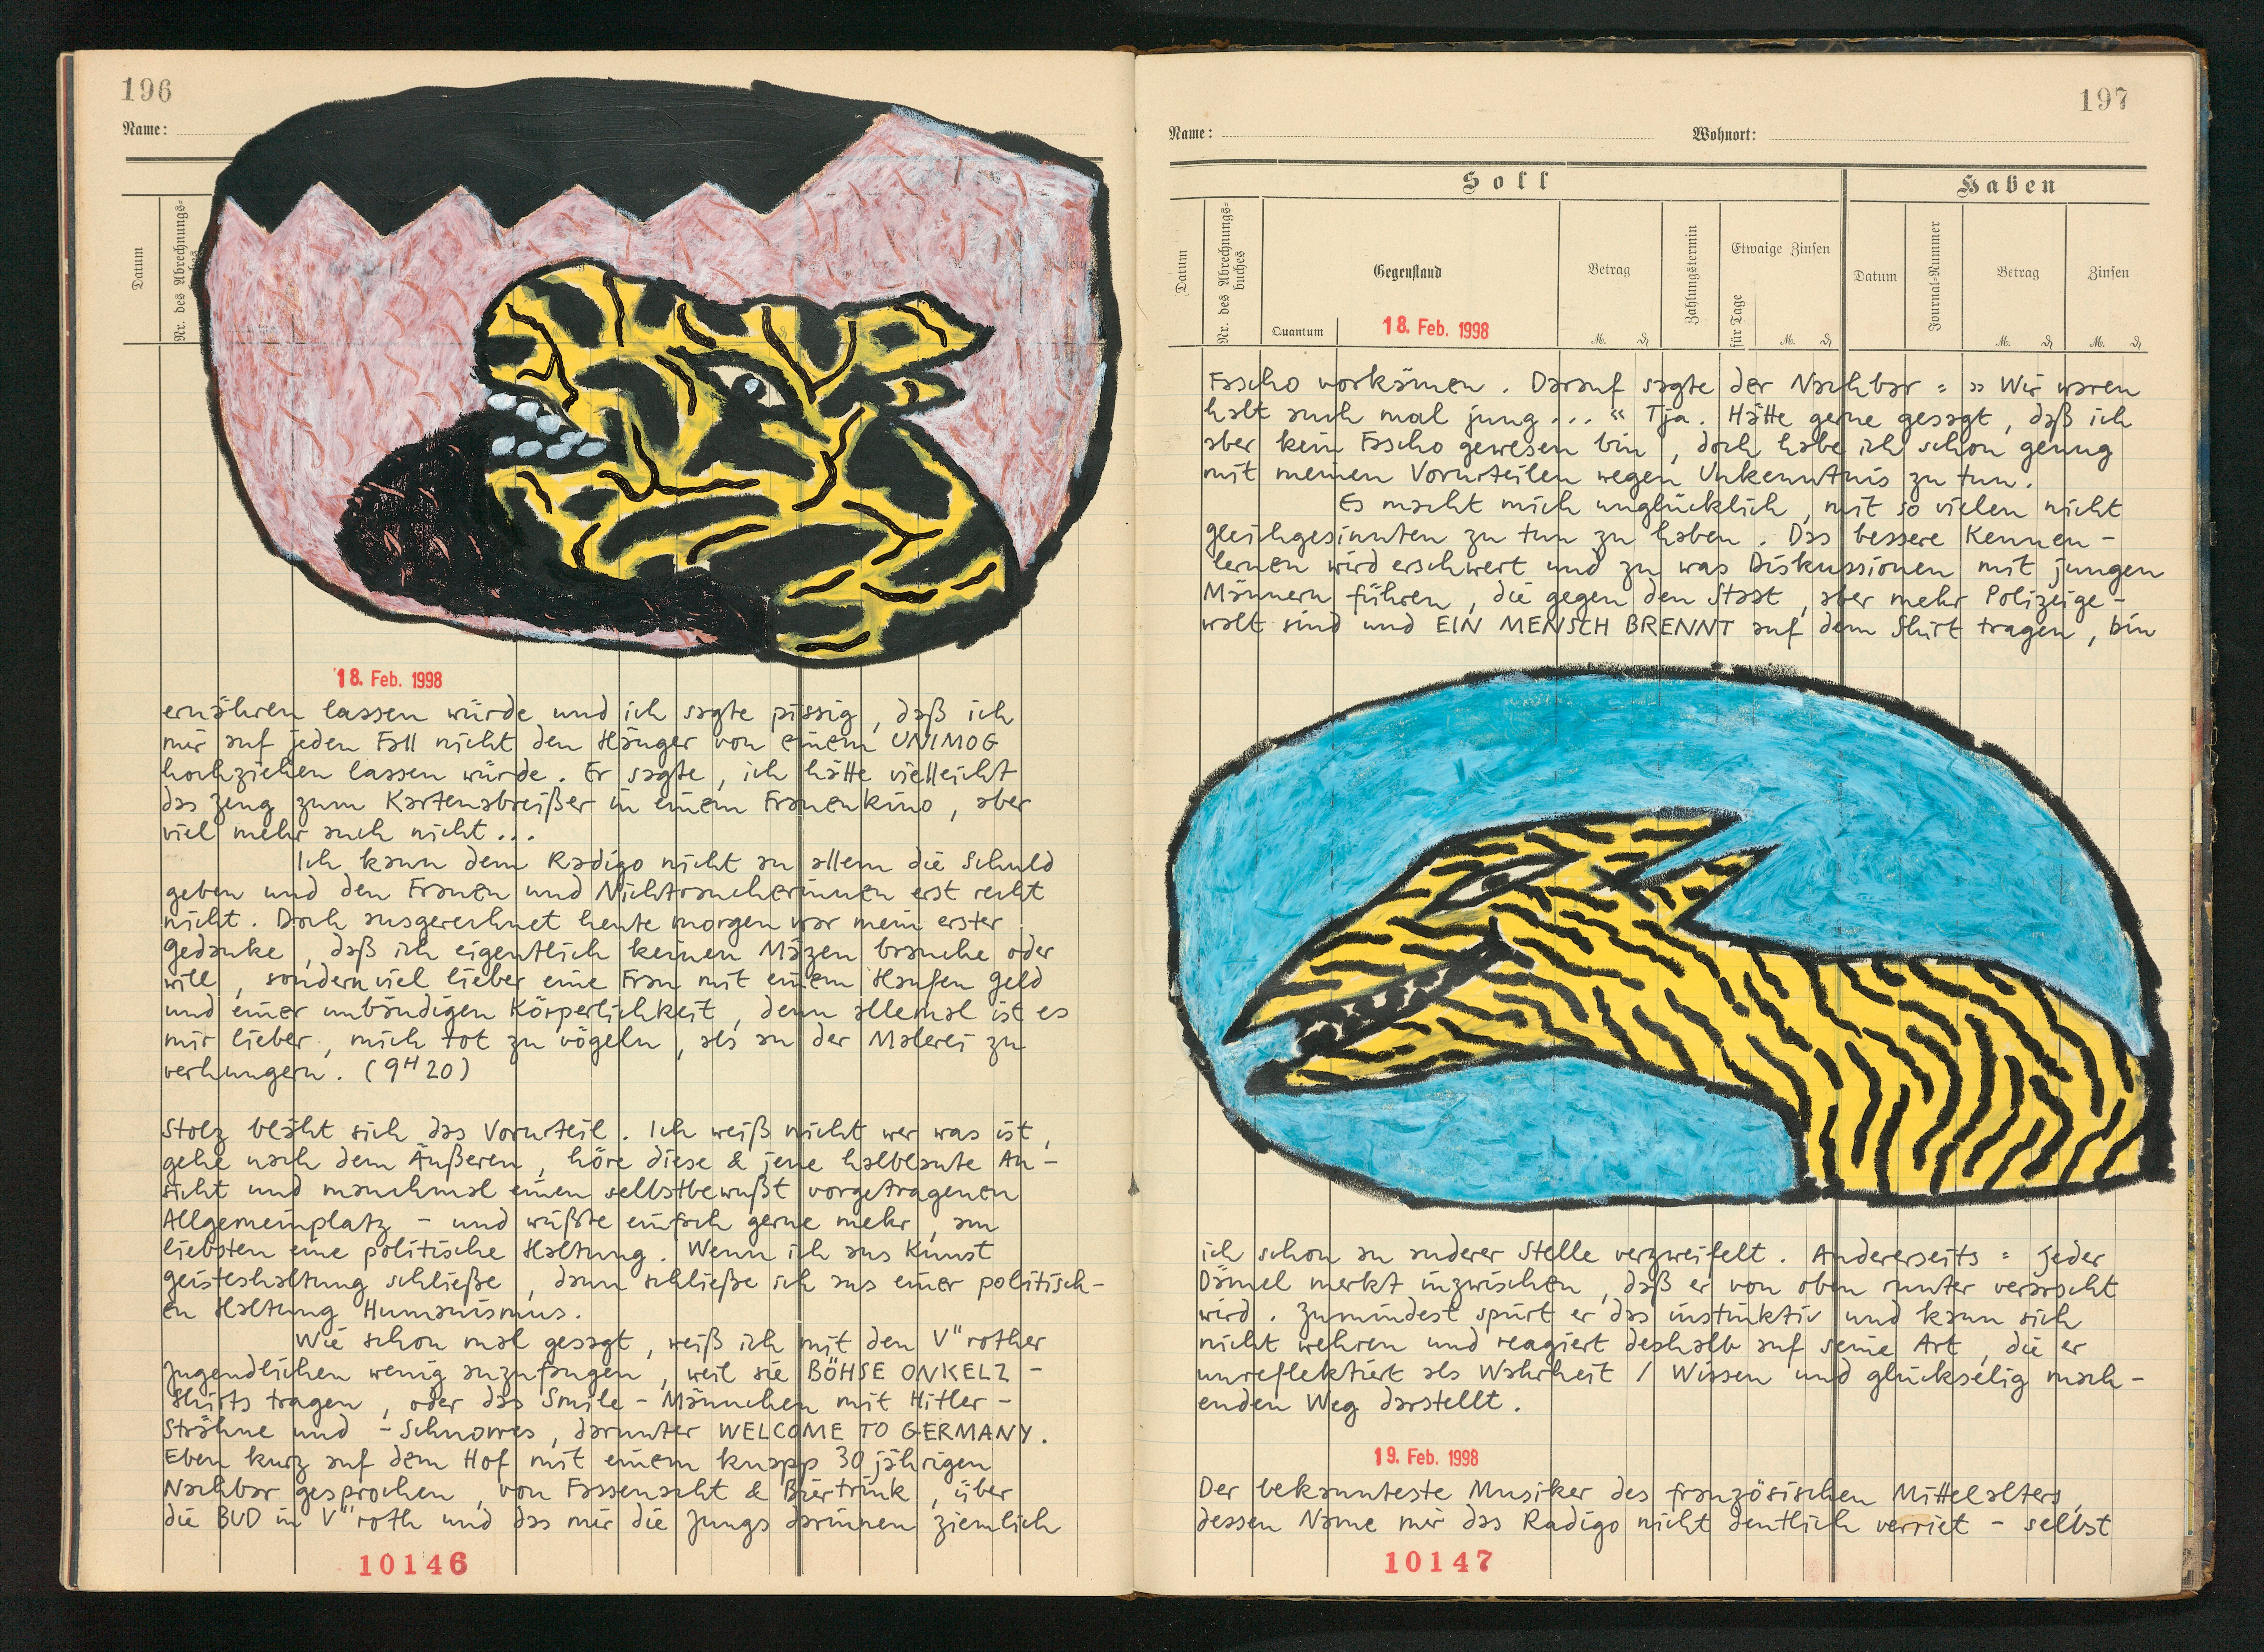 196
Name:
Datum
Nr. des Abrechnungs-
18. Feb. 1998
ernähren lassen würde und ich sagte pissig, daß ich
mir auf jeden Fall nicht den Hänger von einem UNIMOG
hochziehen lassen würde. Er sagte, ich hätte vielleicht
das Zeug zum Kartenabreißer in einem Frauenkino, aber
viel mehr auch nicht...
Ich kann dem Radigo nicht an allem die Schuld
geben und den Frauen und Nichtraucherinnen erst recht
nicht. Doch ausgerechnet heute morgen war mein erster
Gedanke, daß ich eigentlich keinen Mäzen brauche oder
will, sondern viel lieber eine Frau mit einem Haufen Geld
und einer unbändigen Körperlichkeit, denn allemal ist es
mir lieber, mich tot zu vögeln, als an der Malerei zu
verhungern. (9H20)
Stolz bläht sich das Vorurteil. Ich weiß nicht wer was ist,
gehe nach dem Äußeren, höre diese & jene halblaute An-
sicht und manchmal einen selbstbewußt vorgetragenen
Allgemeinplatz - und wüßte einfach gerne mehr, am
liebsten eine politische Haltung. Wenn ich aus Kunst
Geisteshaltung schließe, dann schließe ich aus einer politisch-
en Haltung Humanismus.
Wie schon mal gesagt, weiß ich mit den V"rother
Jugendlichen wenig anzufangen, weil sie BÖHSE ONKELZ-
Shirts tragen, oder das Smile-Männchen mit Hitler-
Strähne und -Schnorres, darunter WELCOME TO GERMANY.
Eben kurz auf dem Hof mit einem knapp 30jährigen
Nachbar gesprochen, von Fassenacht & Biertrink, über
die BUD in V"roth und das mir die Jungs darinnen ziemlich
10146
197
Name:
Wohnort:
Soll
Haben
Datum
Nr. des Abrechnungs-
buches
Gegenstand
Quantum
Betrag
M.
Zahlungstermin
Etwaige Zinsen
für Tage
M.
Datum
Journal-Nummer
Betrag
M.
Zinsen
M.
18. Feb. 1998
Fascho vorkämen. Darauf sagte der Nachbar: »Wir waren
halt auch mal jung...« Tja. Hätte gerne gesagt, daß ich
aber kein Fascho gewesen bin, doch habe ich schon genug
mit meinen Vorurteilen wegen Unkenntnis zu tun.
Es macht mich unglücklich, mit so vielen nicht
gleichgesinnten zu tun zu haben. Das bessere Kennen-
lernen wird erschwert und zu was Diskussionen mit jungen
Männern führen, die gegen den Staat, aber mehr Polizeige-
walt sind und EIN MENSCH BRENNT auf dem Shirt tragen, bin
ich schon an anderer Stelle verzweifelt. Andererseits: Jeder
Dämel merkt inzwischen, daß er von oben runter verarscht
wird. Zumindest spürt er das instinktiv und kann sich
nicht wehren und reagiert deshalb auf seine Art, die er
unreflektiert als Wahrheit / Wissen und glückselig mach-
enden Weg darstellt.
19. Feb. 1998
Der bekannteste Musiker des französischen Mittelalters,
dessen Name mir das Radigo nicht deutlich verriet - selbst
10147